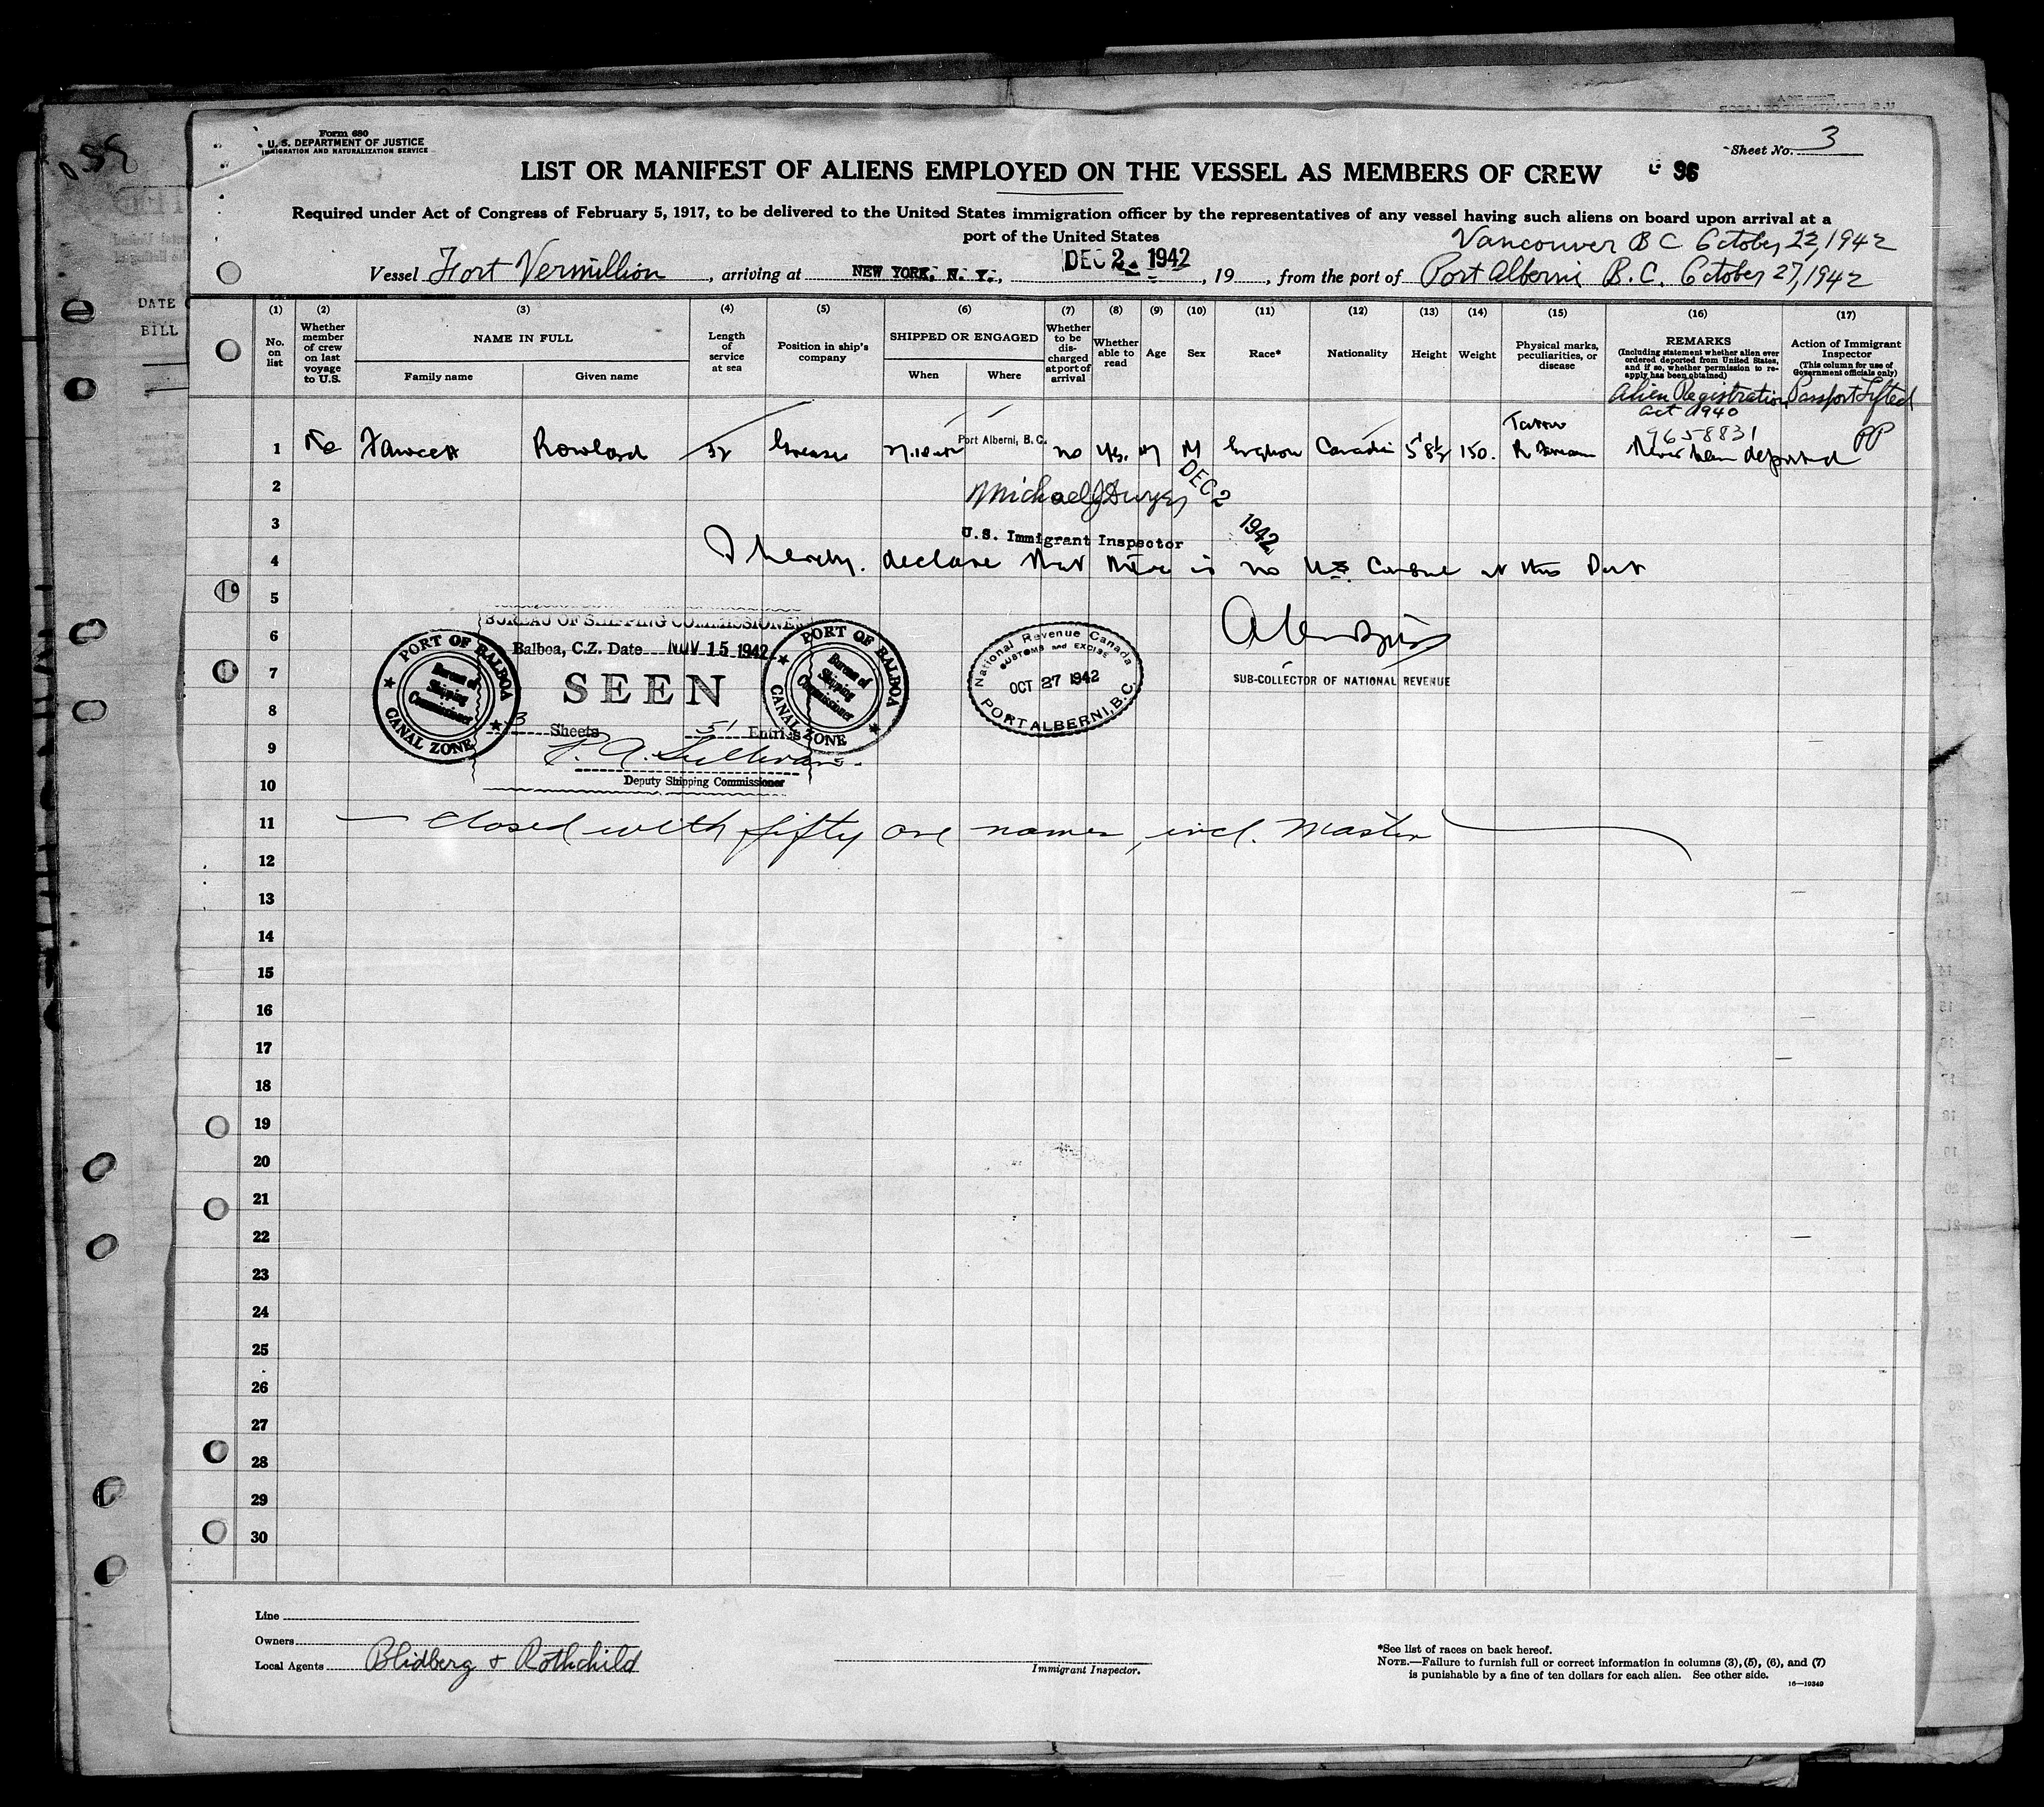 Form 680
U. S. DEPARTMENT OF JUSTICE
IMMIGRATION AND NATURALIZATION SERVICE
Sheet No. 3
LIST OR MANIFEST OF ALIENS EMPLOYED ON THE VESSEL AS MEMBERS OF CREW
96
Required under Act of Congress of February 5, 1917, to be delivered to the United States immigration officer by the representatives of any vessel having such aliens on board upon arrival at a
port of the United States
Vancouver B C October 22, 1942
Vessel Fort Vermillion, arriving at NEW YORK, N. Y., DEC 2 1942, 19, from the port of Port Alberni B.C. October 27, 1942
DATE
BILL
(1) (2) (3) (4) (5) (6) (7) (8) (9) (10) (11) (12) (13) (14) (15) (16) (17)
No. on list
Whether member of crew on last voyage to U.S.
NAME IN FULL
Family name
Given name
Length of service at sea
Position in ship's company
SHIPPED OR ENGAGED
When
Where
Whether to be discharged at port of arrival
Whether able to read
Age
Sex
Race*
Nationality
Height
Weight
Physical marks, peculiarities, or disease
REMARKS
(Including statement whether alien ever ordered deported from United States, and if so, whether permission to reapply has been obtained)
Action of Immigrant Inspector
(This column for use of Government officials only)
Alien Registration
act 1940
Passport Lifted
1 Fawcett Rowland Port Alberni, B.C. no yes. M 5 8½ 150. Tattoo 9658831 PP
Never been deported
2 Michael J Dwyer DEC 2 1942
3
U.S. Immigrant Inspector
4 I hereby declare that there is no U.S. Consul at this Port
5
6
7
8
9
10
BUREAU OF SHIPPING COMMISSIONER
Balboa, C.Z. Date NOV 15 1942
SEEN
3 Sheets 51 Entries
P. A. Sullivan
Deputy Shipping Commissioner
PORT OF BALBOA
Bureau of Shipping Commissioner
CANAL ZONE
PORT OF BALBOA
Bureau of Shipping Commissioner
CANAL ZONE
National Revenue Canada
CUSTOMS and EXCISE
OCT 27 1942
PORT ALBERNI, B.C.
SUB-COLLECTOR OF NATIONAL REVENUE
11 closed with fifty one names, incl. Master
12
13
14
15
16
17
18
19
20
21
22
23
24
25
26
27
28
29
30
Line
Owners
Local Agents Blidberg + Rothchild
Immigrant Inspector.
*See list of races on back hereof.
NOTE.—Failure to furnish full or correct information in columns (3), (5), (6), and (7)
is punishable by a fine of ten dollars for each alien. See other side.
16—19349